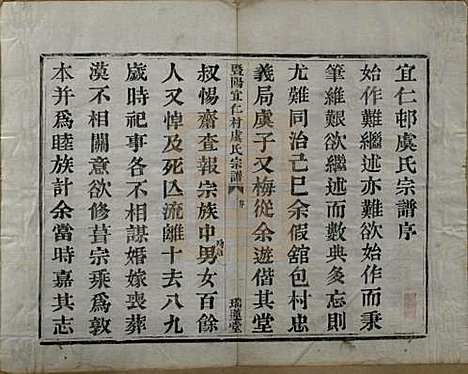 宜仁邨虞氏宗譜序
始作難繼述亦難欲始作而秉
筆維艱欲繼述而數典多忘則
尤難同治己巳余假舘包村忠
義局虞子又梅從余遊偕其堂
暨陽宜仁村虞氏宗譜
瑞蓮堂
叔惕齋查報宗族中男女百餘
人又悼及死亾流離十去八九
歲時祀事各不相謀婚嫁喪葬
漠不相關意欲修葺宗乘為敦
本并爲睦族計余當時嘉其志